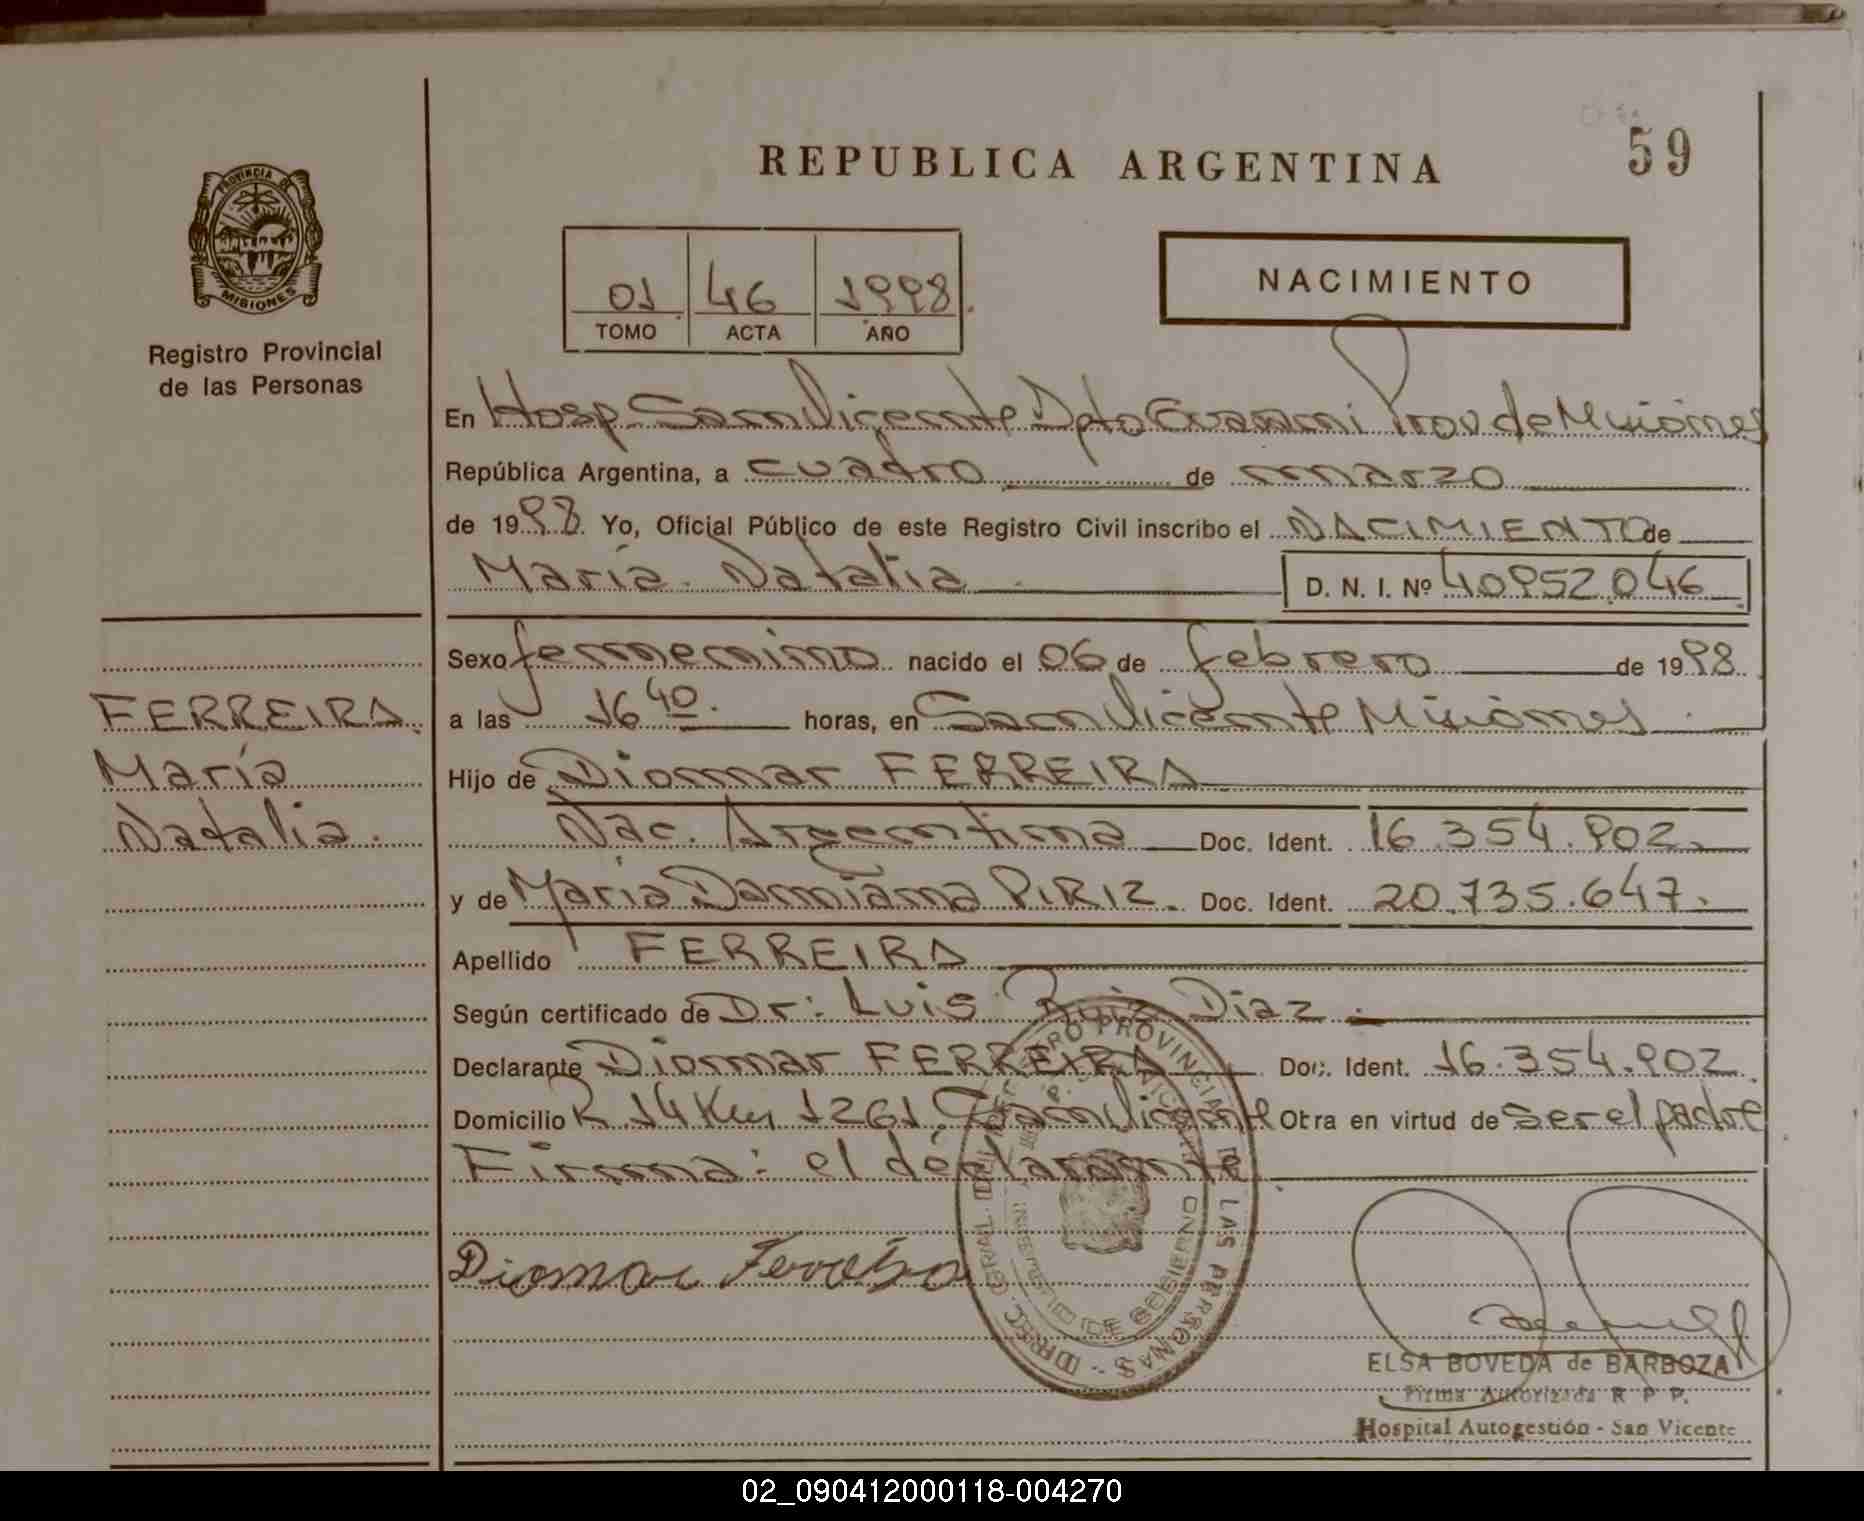 REPUBLICA ARGENTINA
59
PROVINCIA DE
MISIONES
Registro Provincial
de las Personas
01 46 1998
TOMO ACTA AÑO
NACIMIENTO
En Hosp. San Vicente Dpto Guarani Prov de Misiones
República Argentina, a cuadro de marzo
de 1998. Yo, Oficial Público de este Registro Civil inscribo el NACIMIENTO de
María Natalia D. N. I. Nº 40952046
Sexo femenino nacido el 06 de febrero de 1998.
a las 16 40. horas, en San Vicente Misiones
Hijo de Diomar FERREIRA
Nac. Argentina Doc. Ident. 16.354.902.
y de María Damiana PIRIZ. Doc. Ident. 20.735.647.
Apellido FERREIRA
Según certificado de Dr: Luis Ruiz Diaz
Declarante Diomar FERREIRA Doc. Ident. 16.354.902
Domicilio R.14 Km 1261. San Vicente Obra en virtud de ser el padre
Firma: el declarante
FERREIRA
María
Natalia.
Diomar Ferreira
DIREC. GRAL. DEL REGISTRO PROVINCIAL DE LAS PERSONAS
MINISTERIO DE GOBIERNO
ELSA BOVEDA de BARBOZA
Firma Autorizada R P P.
Hospital Autogestión - San Vicente
02_090412000118-004270